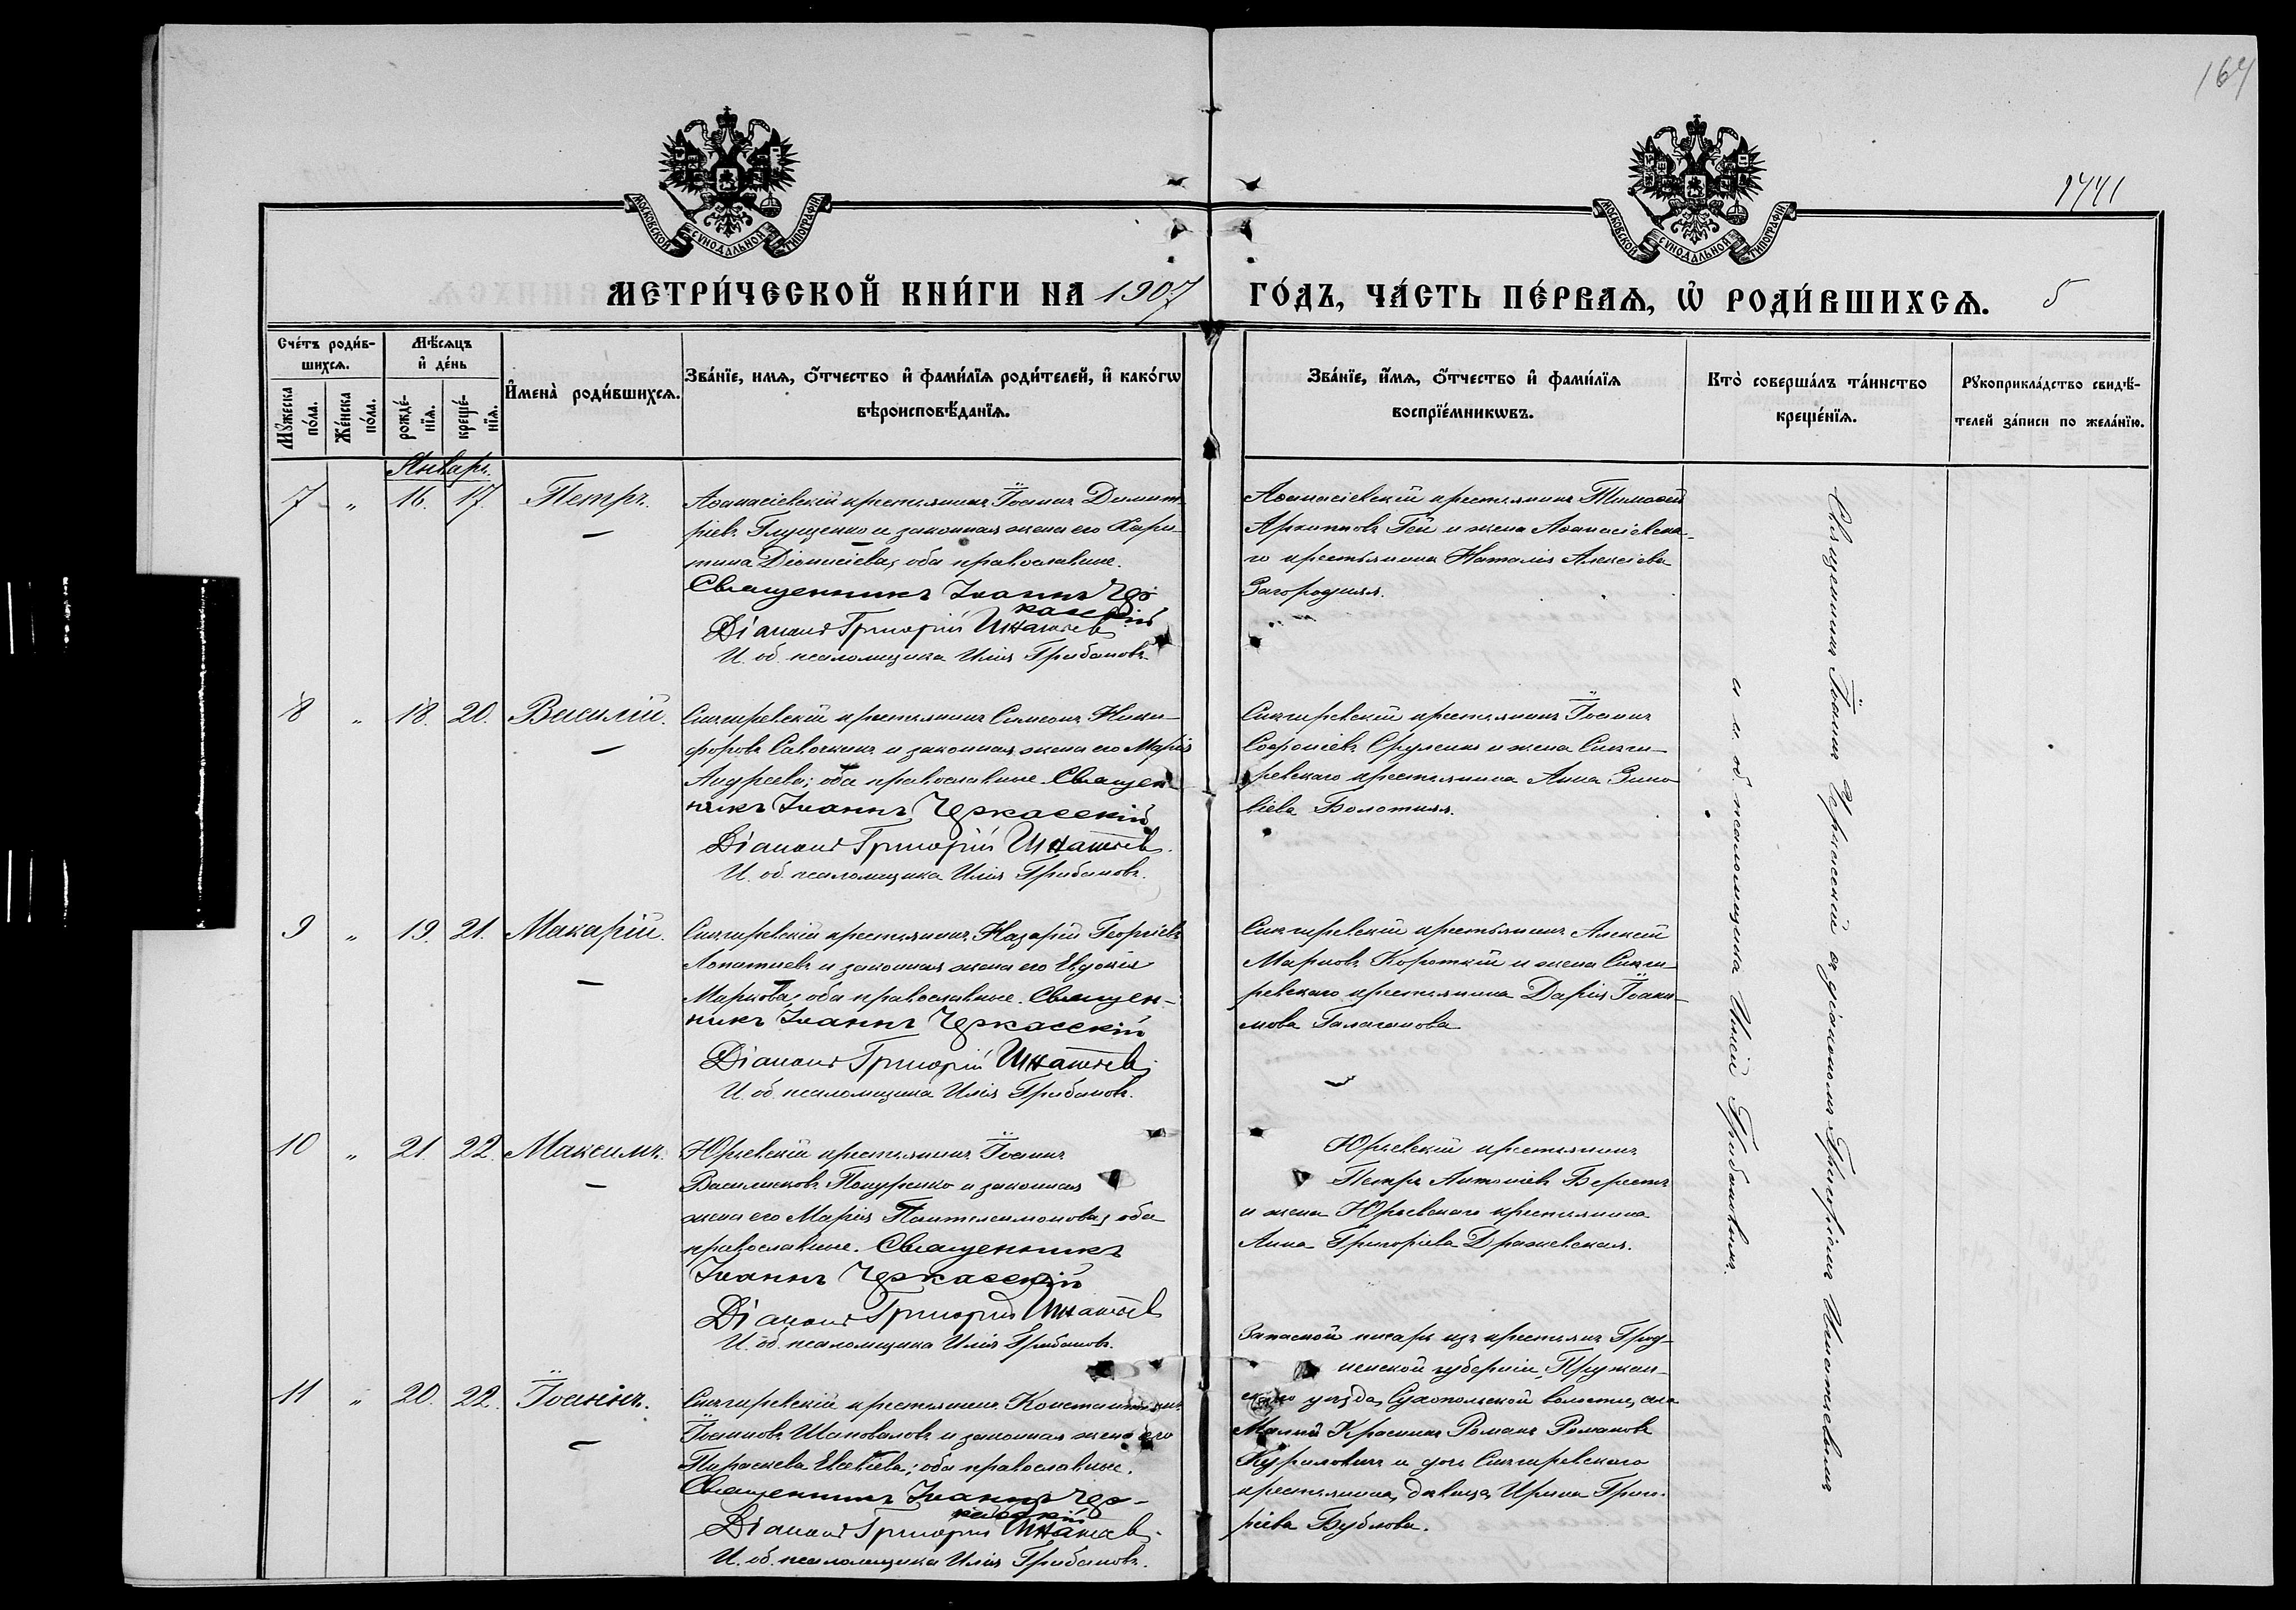 164
МОСКОВСКОЙ СУНОДАЛЬНОЙ ТИПОГРАФІИ
МОСКОВСКОЙ СУНОДАЛЬНОЙ ТИПОГРАФІИ
1441
МЕТРИ́ЧЕСКОЙ КНИ́ГИ НА 1907 ГО́ДЪ, ЧА́СТЬ ПЕ́РВАѦ, Ѽ РОДИ́ВШИХСѦ. 5
Сче́тъ роди́в-
шихсѧ.
Мꙋ́жеска по́ла.
Же́нска по́ла.
Мѣ́сѧцъ
и҆ де́нь
рожде́-
нїѧ.
креще́-
нїѧ.
И҆мена̀ роди́вшихсѧ.
Зва́нїе, имѧ, ѻ҆́тчество и҆ фами́лїѧ роди́телей, и҆ како́гѡ
вѣроисповѣ́данїѧ.
Зва́нїе, и҆́мѧ, ѻ҆́тчество и҆ фами́лїѧ
воспрїе́мникѡвъ.
Кто̀ соверша́лъ та́инство
креще́нїѧ.
Рꙋкоприкла́дство свидѣ́-
телей за́писи по жела́нїю.
Январь.
7 " 16. 17. Петръ.
Аѳанасіевскій крестьянинъ Іоаннъ Димит-
ріевъ Глущенко и законная жена его Хари-
тина Діонисіева, оба православные.
Священникъ Іоаннъ Чер-
касскій
Діаконъ Григорій Игнатьев
И. об. псаломщика Илія Грибановъ.
Аѳанасіевскій крестьянинъ Тимоѳей
Архиповъ Гей и жена Аѳанасіевска-
го крестьянина Наталія Алексіева
Загородняя.
8 " 18. 20. Василій.
Снигиревскій крестьянинъ Симеонъ Ники-
форовъ Савочкинъ и законная жена его Марія
Андреева; оба православные. Священ-
никъ Іоаннъ Черкасскій
Діаконъ Григорій Игнатьев.
И. об. псаломщика Илія Грибановъ.
Снигиревскій крестьянинъ Іоаннъ
Софроніевъ и жена Сниги-
ревскаго крестьянина Анна Зино-
віева Болотная.
9 " 19. 21. Макарій.
Снигиревскій крестьянинъ Назарій Георгіевъ
Лопатневъ и законная жена его Евдокія
Маркова, оба православные. Священ-
никъ Іоаннъ Черкасскій
Діаконъ Григорій Игнатьев
И. об. псаломщика Илія Грибановъ.
Снигиревскій крестьянинъ Алексій
Марковъ Короткій и жена Сниги-
ревскаго крестьянина Дарія Іоаки-
мова Галаганова
10 " 21. 22. Максимъ.
Юрьевскій крестьянинъ Іоаннъ
Василисковъ и законная
жена его Марія Пантелеимонова, оба
православные. Священникъ
Іоаннъ Черкасскій
Діаконъ Григорій Игнатьев
И. об. псаломщика Илія Грибановъ.
Юрьевскій крестьянинъ
Петръ Антоніевъ Берестъ
и жена Юрьевскаго крестьянина
Анна Григоріева Дражевская.
11 " 20. 22. Іоаннъ.
Снигиревскій крестьянинъ Константинъ
Іоанновъ Шаповаловъ и законная жена его
Параскева Евсевіева; оба православные.
Священникъ Іоаннъ Чер-
касскій
Діаконъ Григорій Игнатьев.
И. об. псаломщика Илія Грибановъ.
Запасной писарь изъ крестьянъ Грод-
ненской губерніи, Пружан-
скаго уѣзда, Сухопольской волости, села
Малый Красникъ Романъ Романовъ
Куриловичъ и дочь Снигиревскаго
крестьянина, дѣвица, Ирина Григо-
ріева Бублова.
Священникъ Іоаннъ Черкасскій съ діакономъ Григоріемъ Игнатьевымъ
и и. об. псаломщика Иліей Грибановымъ.